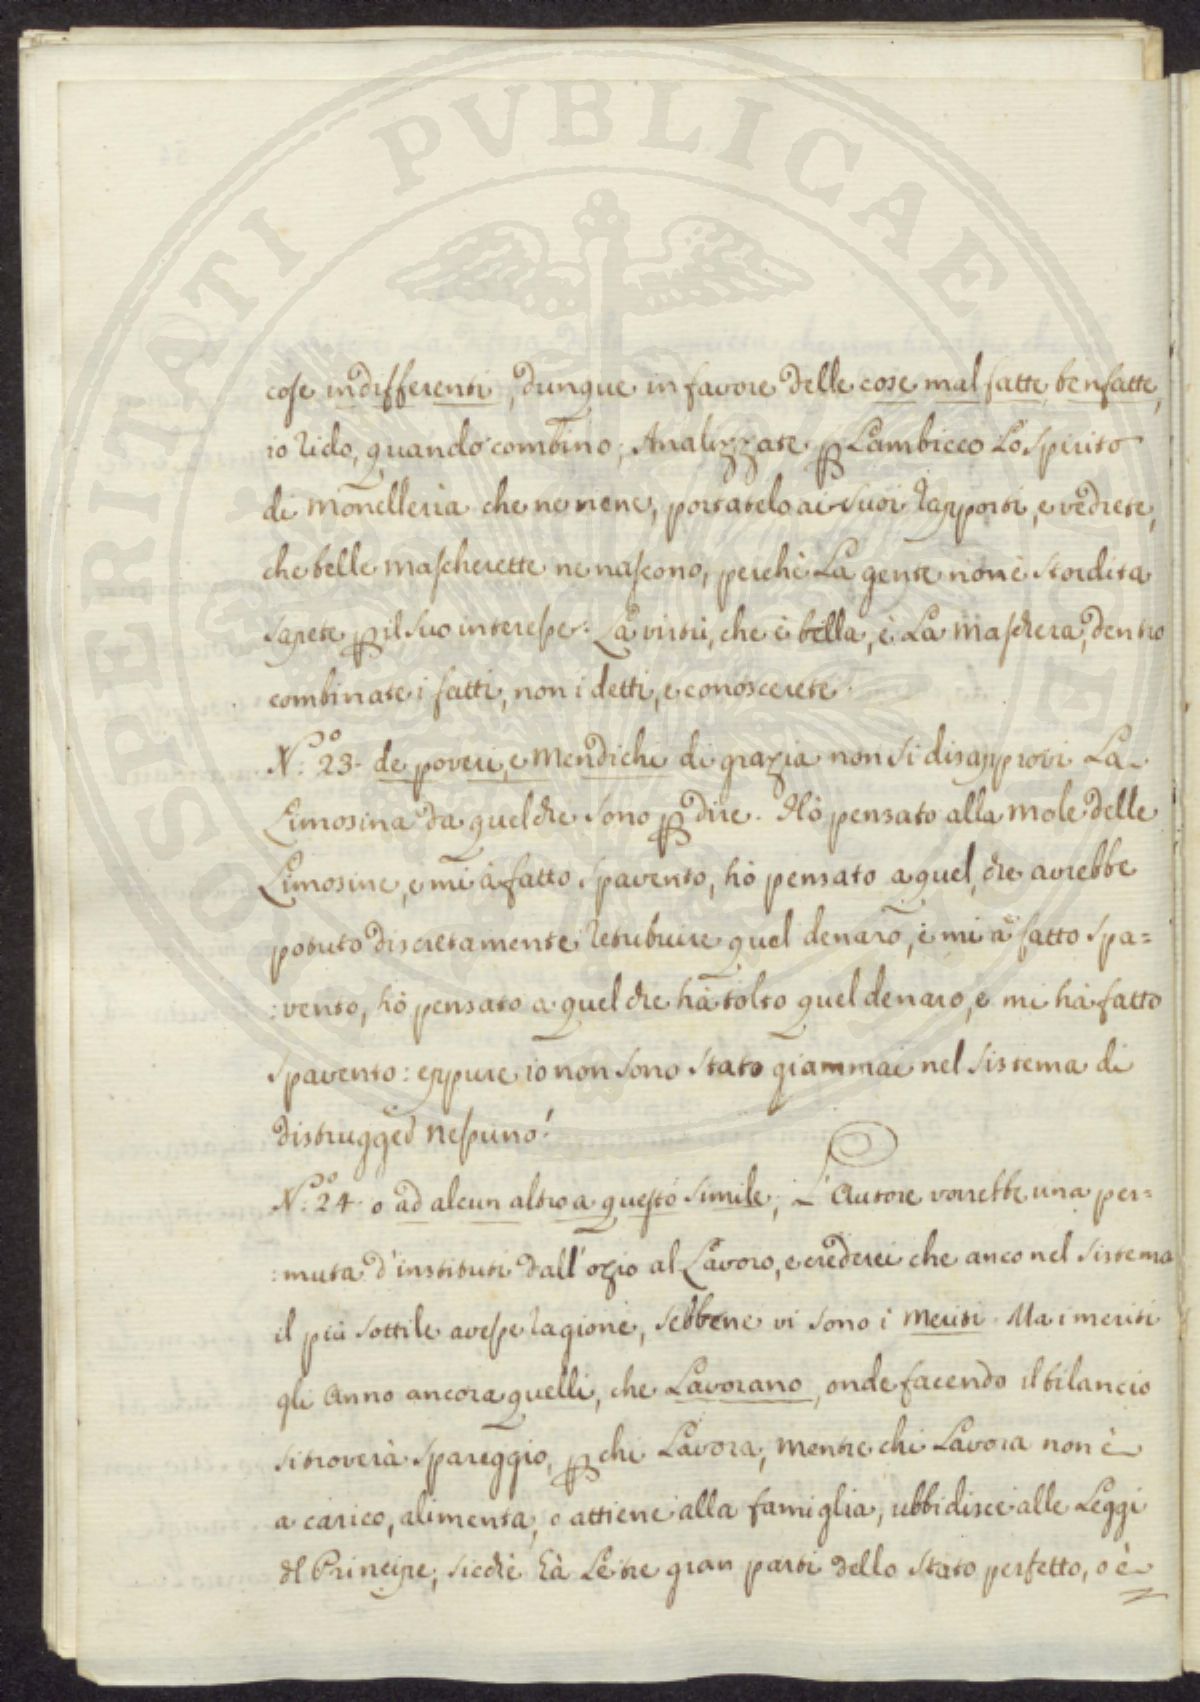 PROSPERITATI PUBLICAE
cose indifferenti, dunque in favore delle cose mal fatte benfatte,
io rido, quando combino; Analizzate p Lambicco Lo Spirito
di monelleria che ne viene, portatelo ai suoi rapporti, e vedrete,
che belle mascherette ne nascono, perchè La gente non è stordita
sapete p il suo interesse: La virtù, che è bella, è La maschera, dentro
combinate i fatti, non i detti, e conoscerete.
N.o 23. de poveri, e Mendichi di grazia non si disapprovi La
Limosina da quel che sono p dire. Hò pensato alla mole delle
Limosine, e mi à fatto spavento, hò pensato a quel, che avrebbe
potuto discretamente retribuire quel denaro, e mi à fatto spa=
:vento, hò pensato a quel che hà tolto quel denaro, e mi hà fatto
spavento: eppure io non sono stato giammai nel sistema di
nessuno!
N.o 24. o ad alcun altro a questo simile; L'Autore vorrebbe una per=
:muta d'instituti dall'ozio al Lavoro, e crederei che anco nel sistema
il più sottile avesse ragione, sebbene vi sono i meriti. Ma i meriti
gli Anno ancora quelli, che Lavorano, onde facendo il bilancio
si troverà spareggio, p chi Lavora, mentre chi Lavora non è
a carico, alimenta, o attiene alla famiglia, ubbidisce alle Leggi
del Principe; sicchè hà Le tre gran parti dello stato perfetto, o è